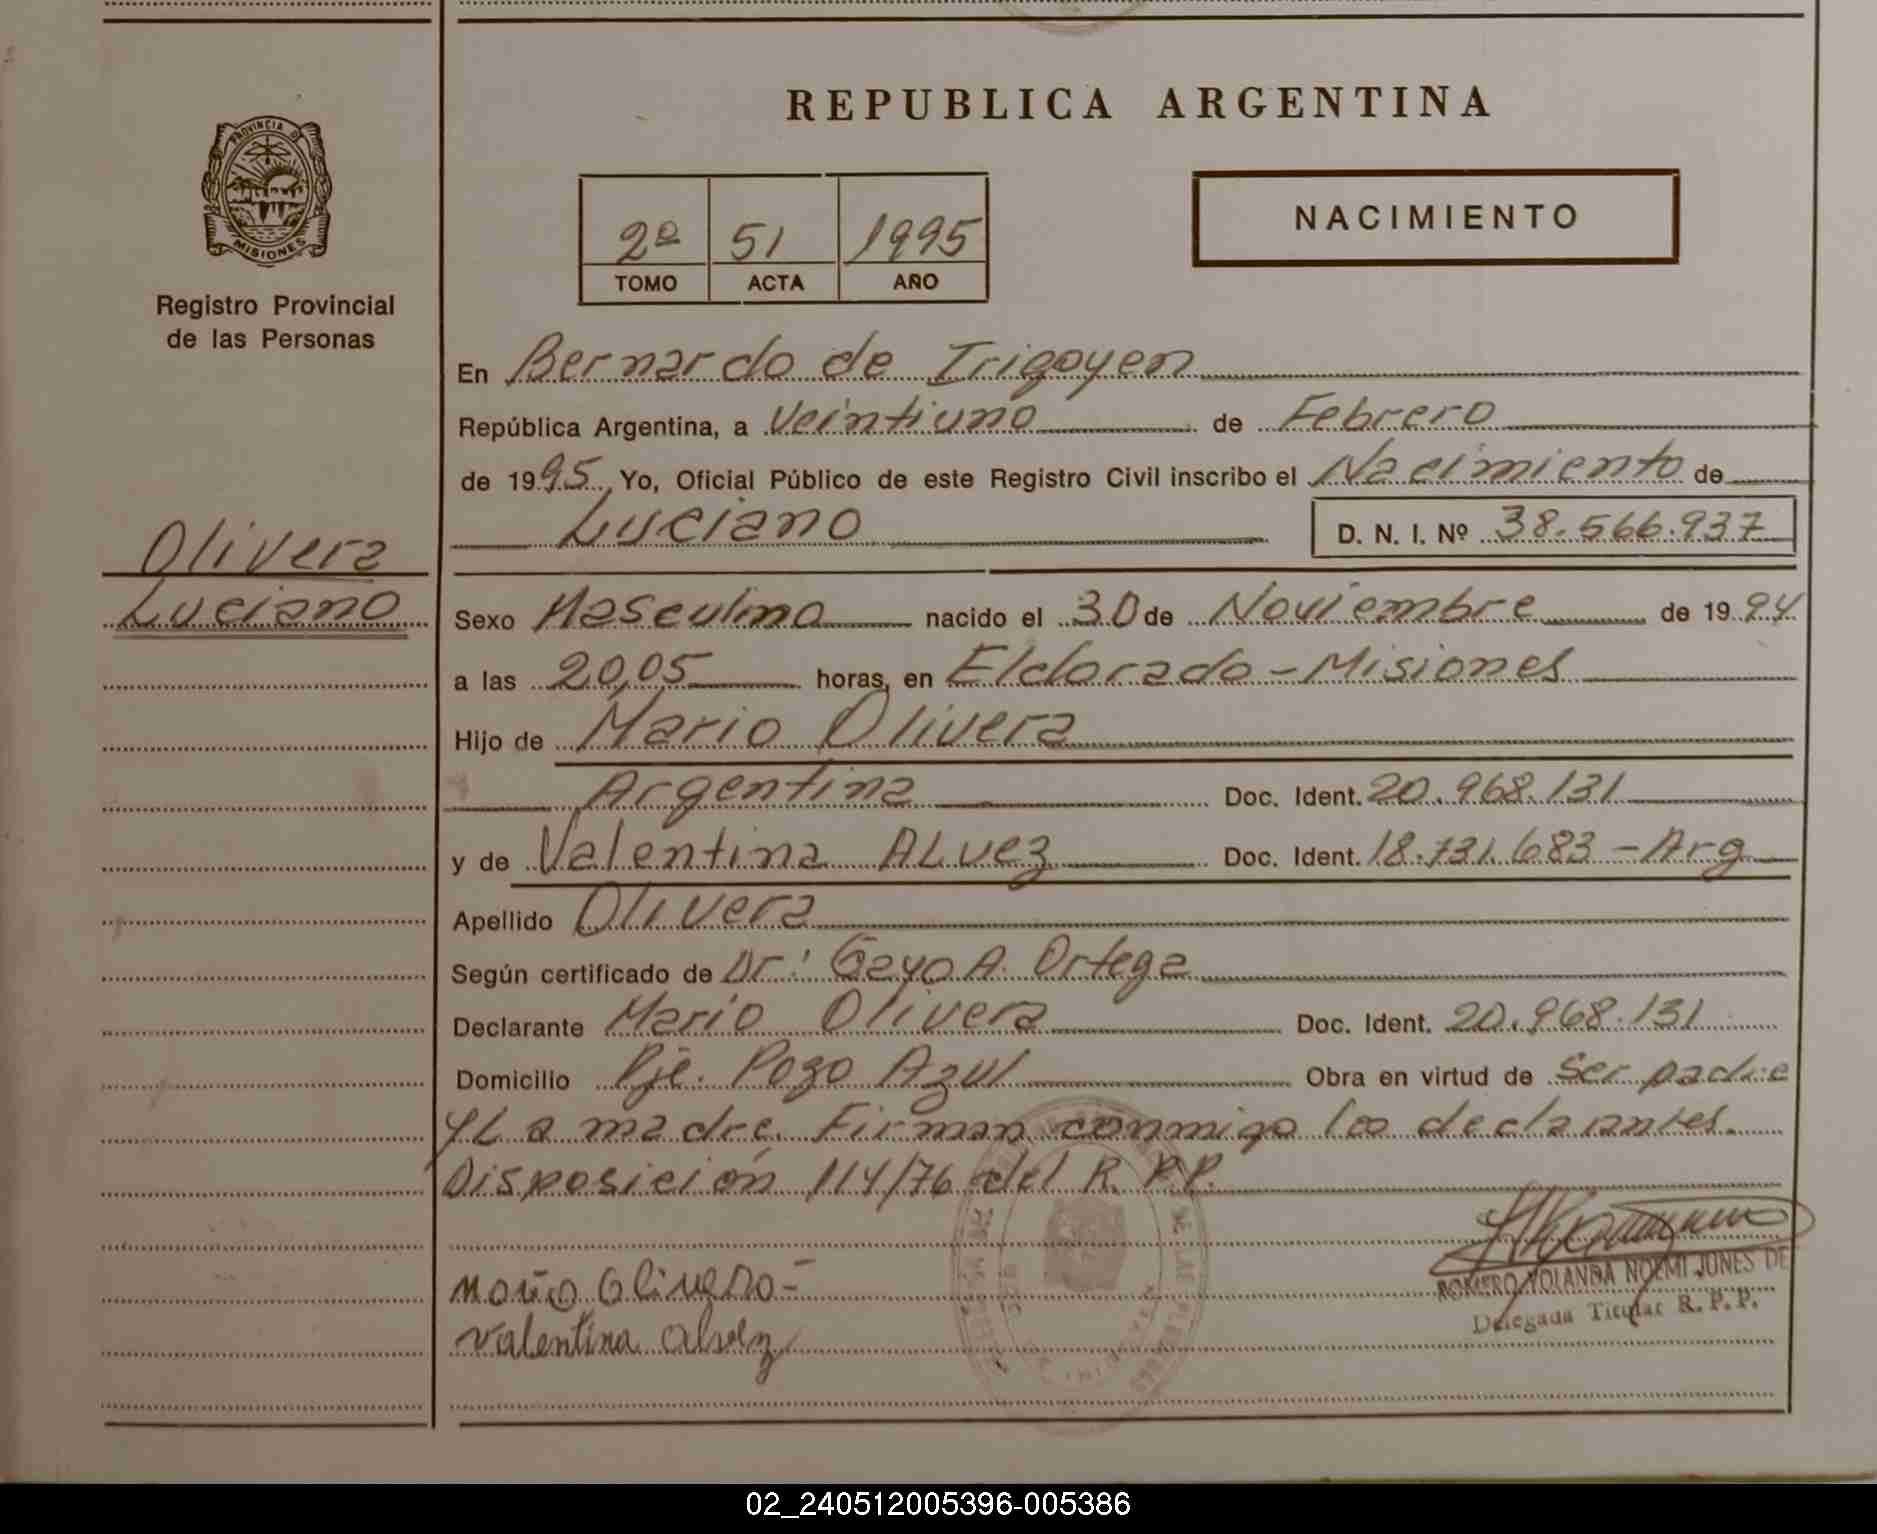 REPUBLICA ARGENTINA
PROVINCIA D
MISIONES
Registro Provincial
de las Personas
2º 51 1995
TOMO ACTA AÑO
NACIMIENTO
En Bernardo de Irigoyen
República Argentina, a Veintiuno de Febrero
de 1995 Yo, Oficial Público de este Registro Civil inscribo el Nacimiento de
Luciano D. N. I. Nº 38.566.937
Olivera
Luciano
Sexo Masculino nacido el 30 de Noviembre de 1994
a las 20,05 horas, en Eldorado - Misiones
Hijo de Mario Olivera
Argentina Doc. Ident. 20.968.131
y de Valentina ALvez Doc. Ident. 18.731.683 - Arg
Apellido Olivera
Según certificado de Dr: Gayo A. Ortega
Declarante Mario Olivera Doc. Ident. 20.968.131
Domicilio Pje. Pozo Azul Obra en virtud de Ser padre
y La madre. Firman conmigo los declarantes.
Disposición 114/76 del R. P.P.
Mario Olivera -
Valentina Alvez
ROMERO YOLANDA NOEMI JONES DE
Delegada Titular R. P. P.
02_240512005396-005386